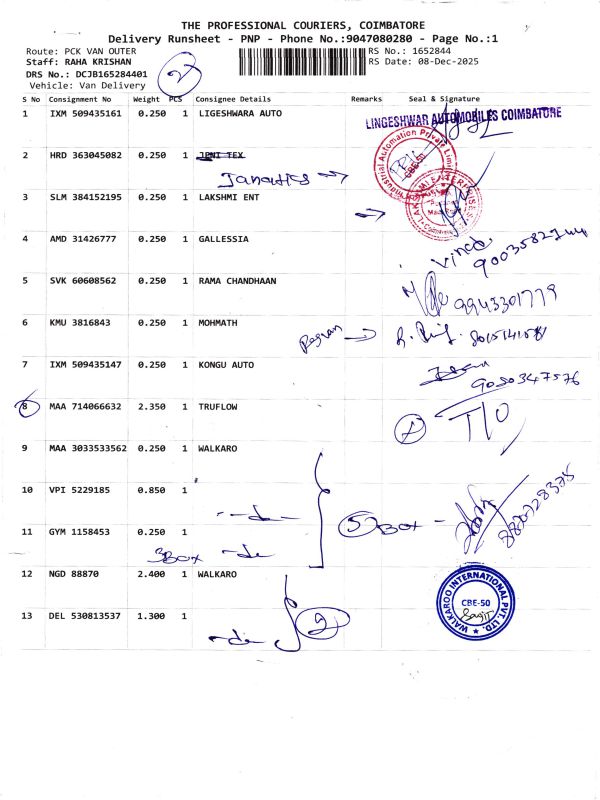 THE PROFESSIONAL COURIERS, COIMBATORE
Delivery Runsheet - PNP - Phone No.:9047080280 - Page No.:1
Route: PCK VAN OUTER RS No.: 1652844
Staff: RAHA KRISHAN RS Date: 08-Dec-2025
DRS No.: DCJB165284401
Vehicle: Van Delivery
S No Consignment No Weight PCS Consignee Details Remarks Seal & Signature
1 IXM 509435161 0.250 1 LIGESHWARA AUTO LINGESHWAR AUTOMOBILES COIMBATORE
2 HRD 363045082 0.250 1 JPNI TEX
CBE-50
3 SLM 384152195 0.250 1 LAKSHMI ENT
4 AMD 31426777 0.250 1 GALLESSIA
5 SVK 60608562 0.250 1 RAMA CHANDHAAN
9943301779
6 KMU 3816843 0.250 1 MOHMATH
7 IXM 509435147 0.250 1 KONGU AUTO
9050347576
8 MAA 714066632 2.350 1 TRUFLOW
9 MAA 3033533562 0.250 1 WALKARO
10 VPI 5229185 0.850 1
-do-
5 Box -
11 GYM 1158453 0.250 1
3Box -do
12 NGD 88870 2.400 1 WALKARO
WALKAROO INTERNATIONAL PVT. LTD.
CBE-50
13 DEL 530813537 1.300 1
-do 2